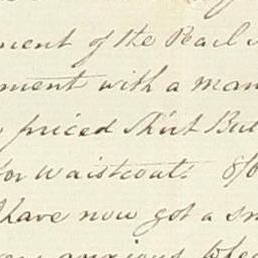 ment of the Pearl
ment with a man
priced Shirt But
for Waistcoats 8/6
have now got a sm
anxious